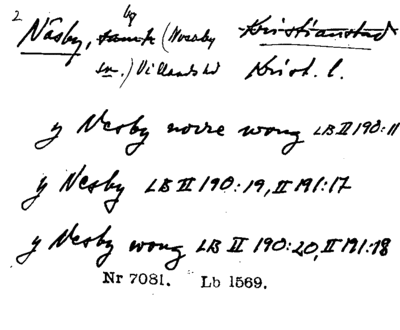 2 Näsby, (Norreby Kristianstad
sn.) Villands hd Krist. l.
y Nesby norre wong LB II 190:11
y Nesby LB II 190:19, II 191:17
y Nesby wong LB II 190:20, II 191:18
Nr 7081. Lb 1569.